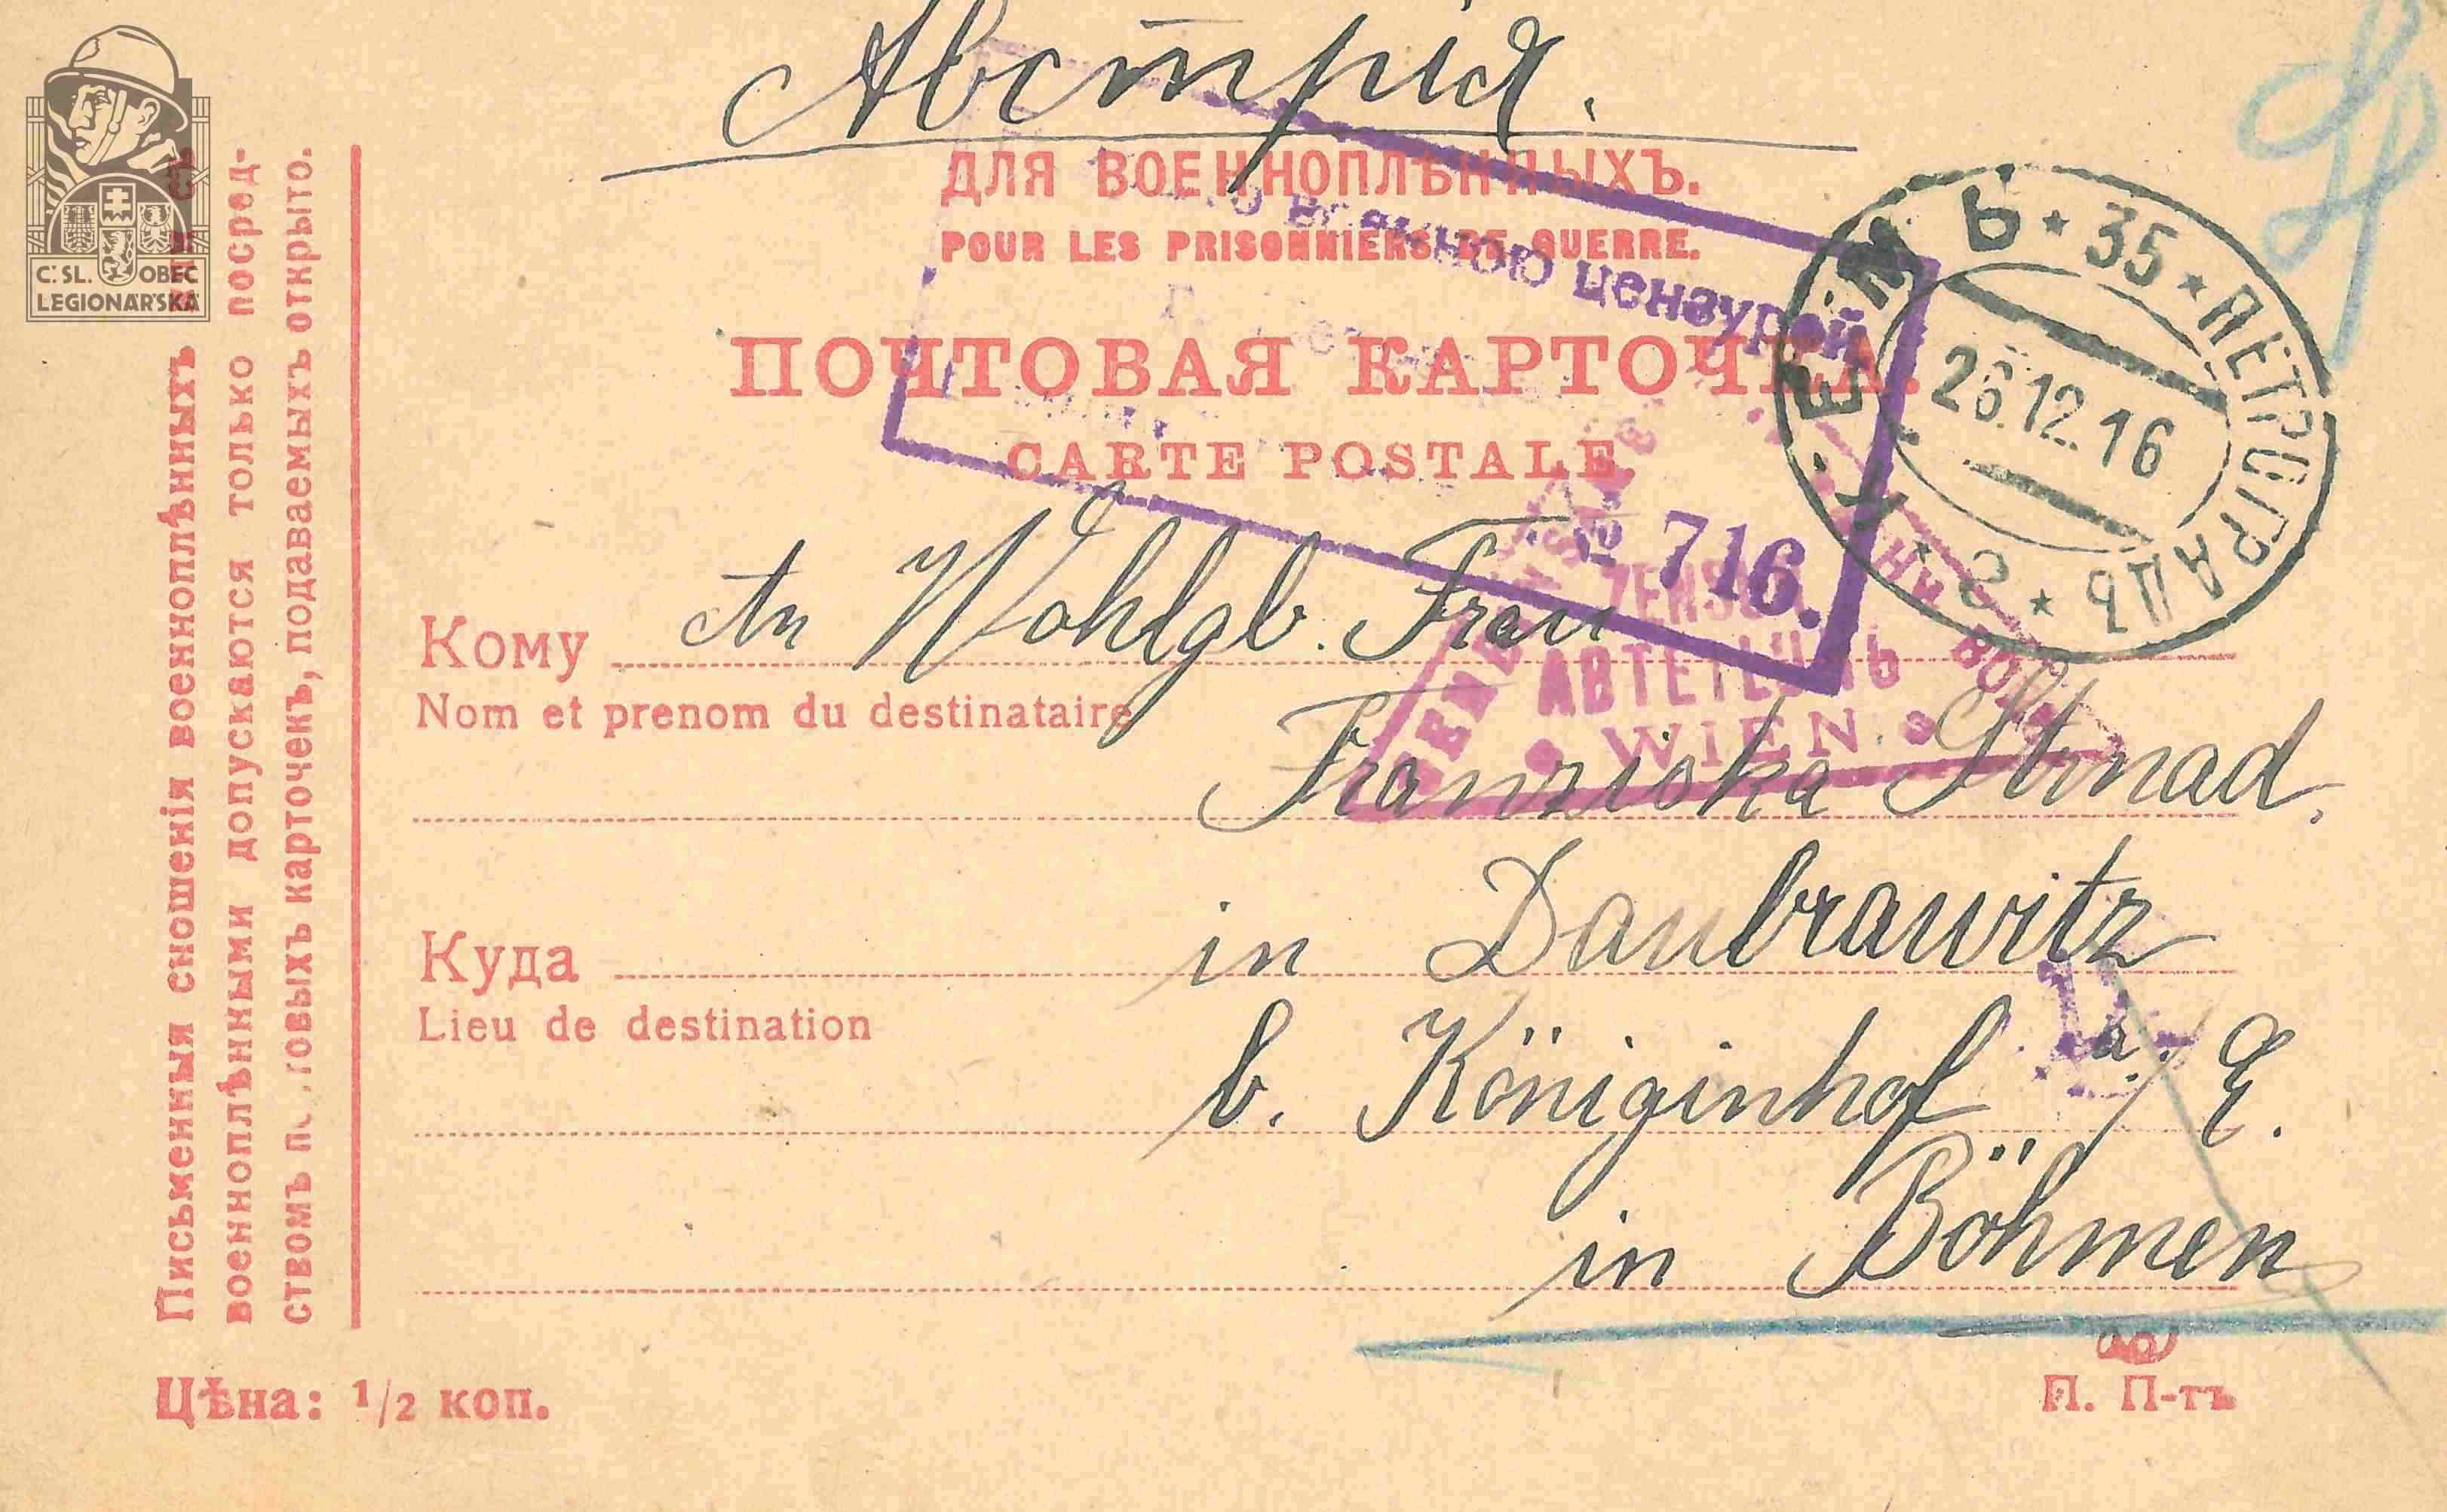 Австрія.
ДЛЯ ВОЕННОПЛѢННЫХЪ.
POUR LES PRISONNIERS DE GUERRE.
ПОЧТОВАЯ КАРТОЧКА.
CARTE POSTALE
военною цензурой
№ 716.
35 * ПЕТРОГРАДЪ * 2
26.12.16
ZENSUR
ABTEILUNG
WIEN
Кому An Wohlgb. Frau
Nom et prenom du destinataire
Franziska Strnad.
Куда in Daubrawitz
Lieu de destination
b. Königinhof a/E.
in Böhmen
Письменныя сношенія военноплѣнныхъ или съ
военноплѣнными допускаются только посред-
ствомъ почтовыхъ карточекъ, подаваемыхъ открыто.
Цѣна: 1/2 коп.
П. П-тъ
Č. SL. OBEC
LEGIONÁŘSKÁ